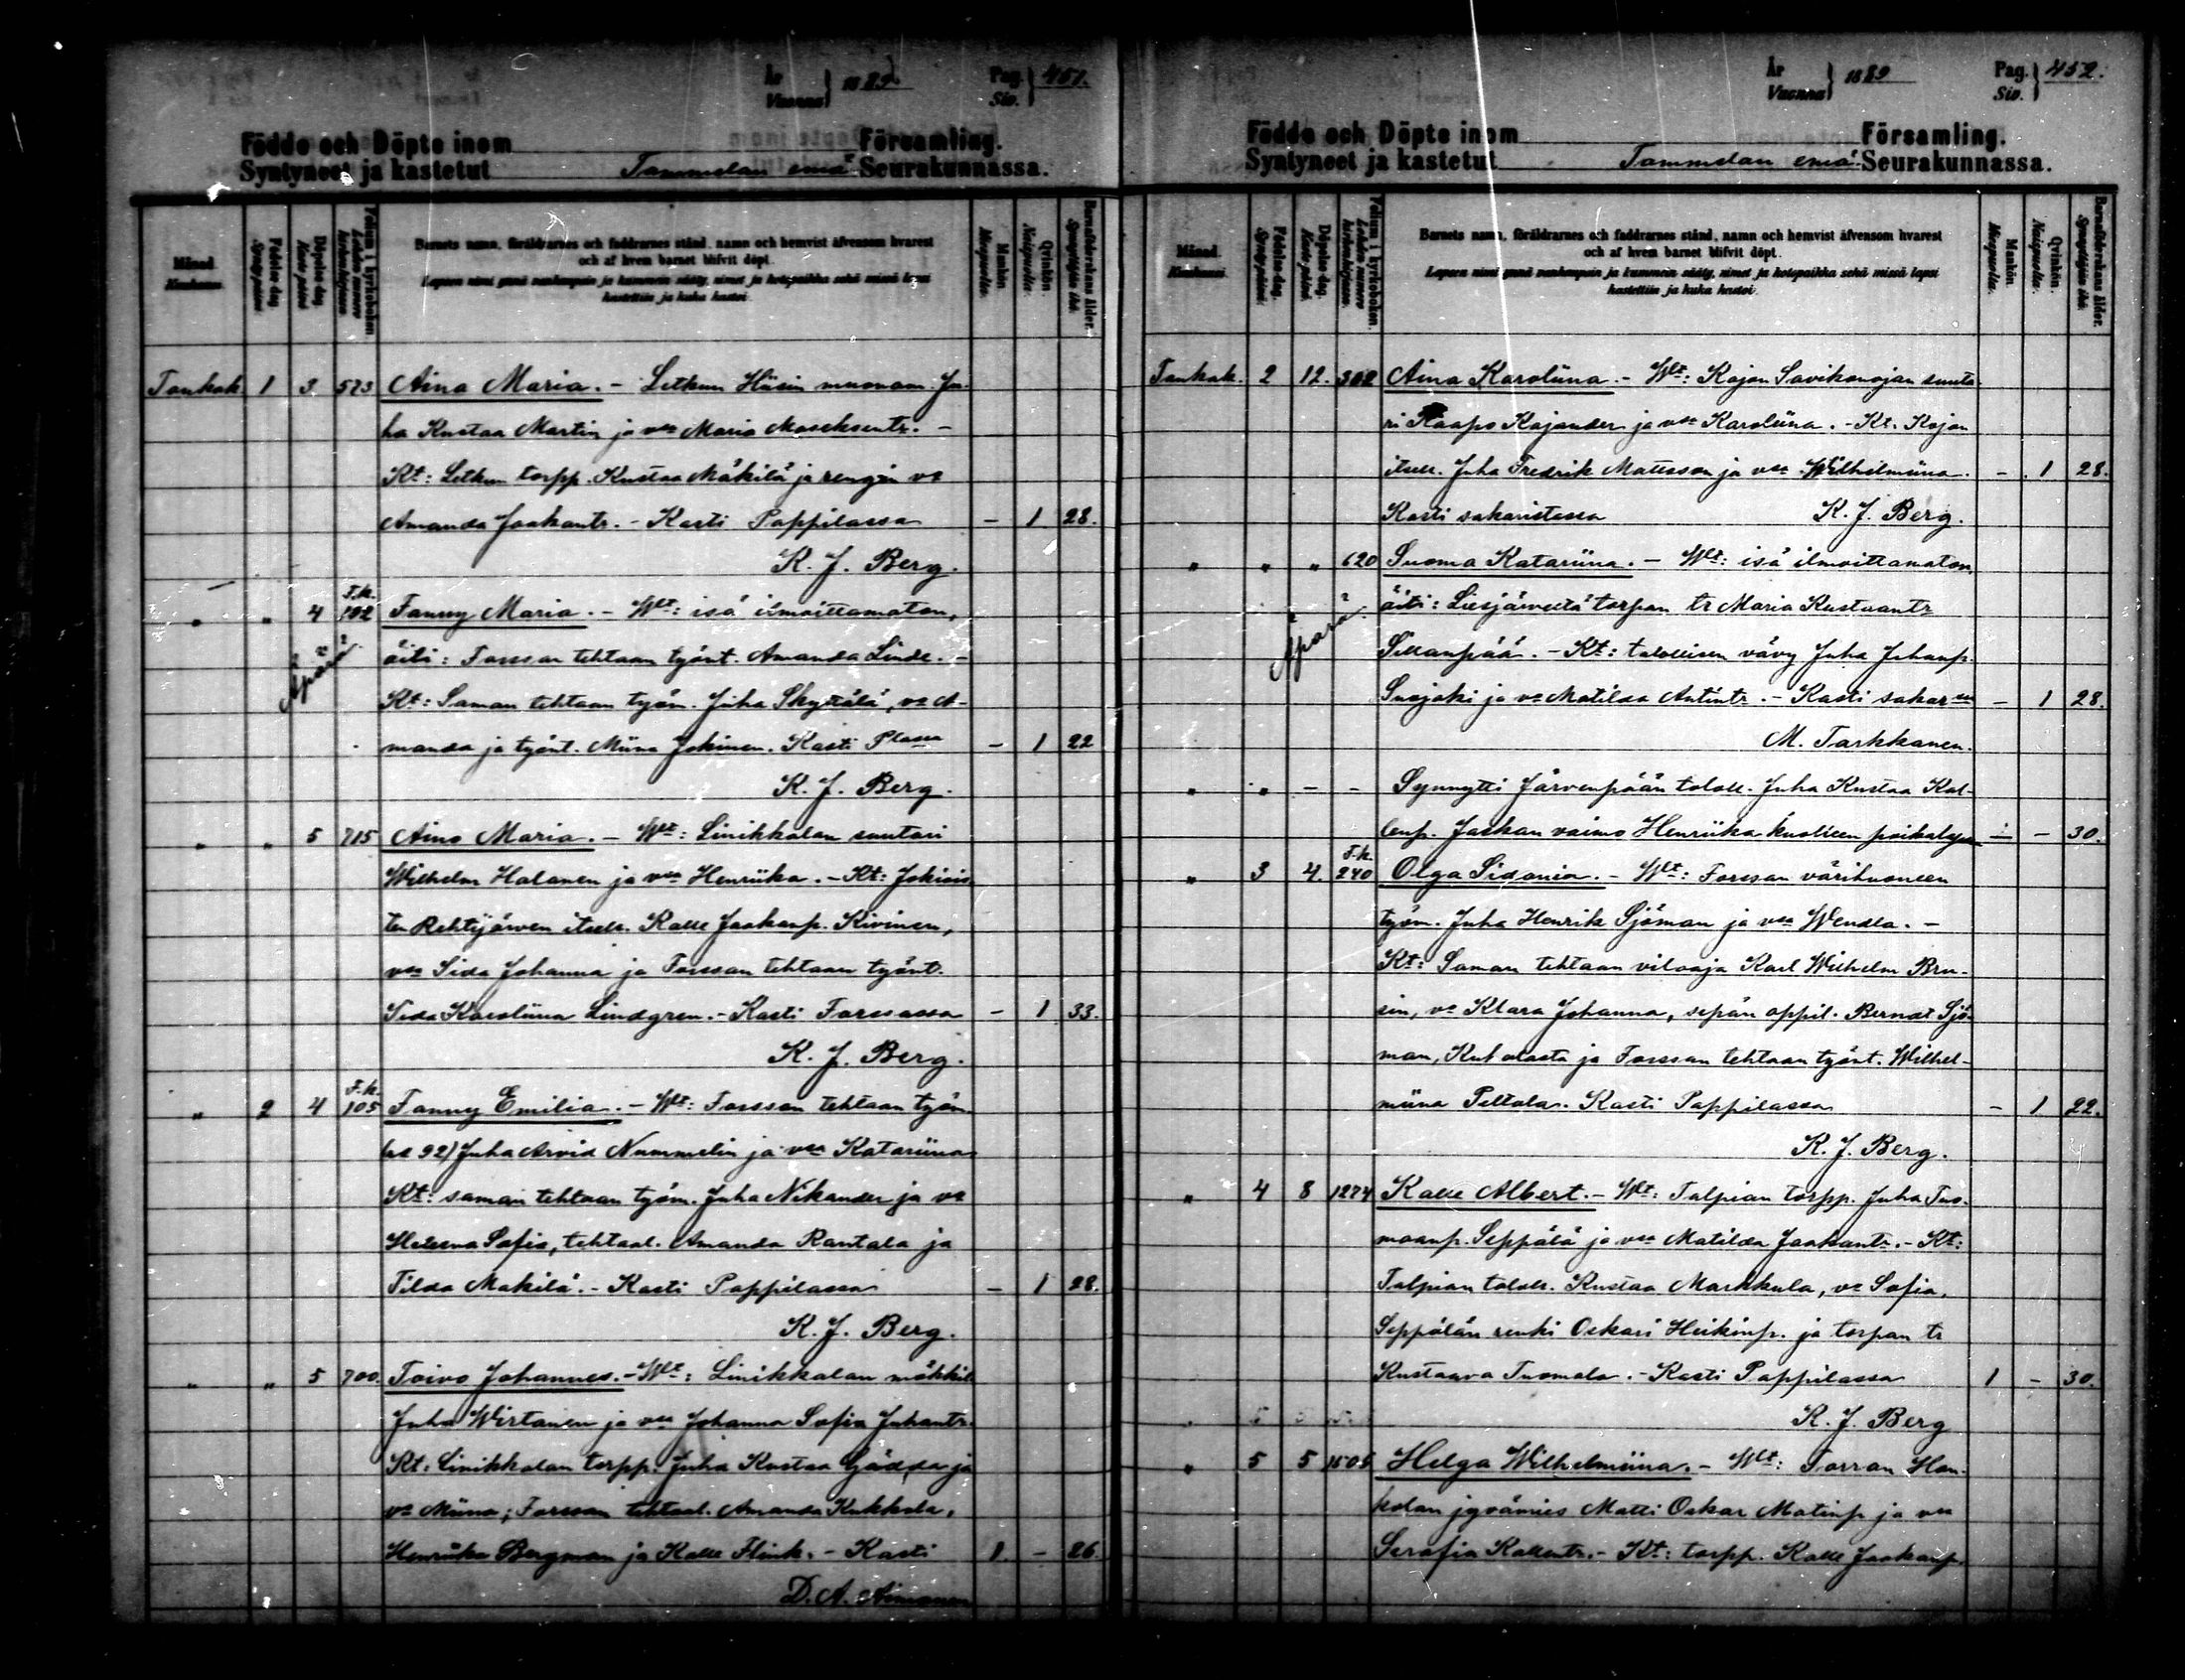 År
Vuonna } 1889
Pag.
Siv. } 451.
Födde och Döpte inom Församling.
Syntyneet ja kastetut Tammelan emä Seurakunnassa.
Månad. Kuukausi.
Födelse-dag. Syntymäpäivä.
Döpelse-dag. Kastepäivä.
Folium i kyrkoboken.
Barnets namn, föräldrarnes och faddrarnes stånd, namn och hemvist äfvensom hvarest
och af hvem barnet blifvit döpt.
Lapsen nimi ynnä vanhempain ja kummein sääty, nimet ja kotopaikka sekä missä lapsi
kastettiin ja kuka kastoi.
Mankön. Miespuolta.
Qvinkön. Naispuolta.
Barnaföderskans ålder. Synnyttäjän ikä.
Toukok. 1 3 573 Aina Maria. – Letkun Hiisin muonam. Ju-
ha Kustaa Martin ja vmo Maria Mooseksentr. –
Kt: Letkun torpp. Kustaa Mäkilä ja rengin vo
Amanda Jaakontr. – Kasti Pappilassa – 1 28.
K. J. Berg.
F.k.
„ „ 4 192 Fanny Maria. – Wlt: isä ilmoittamaton,
äiti: Forssan tehtaan työnt. Amanda Linde. –
Äpärä
Kt: Saman tehtaan työm. Juha Skyttälä, vo A-
manda ja työnt. Miina Jokinen. Kasti Plassa – 1 22
K. J. Berg.
„ „ 5 715 Aino Maria. – Wlt: Linikkalan suutari
Wilhelm Halanen ja vmo Henriika. – Kt: Jokiois-
ten Rehtijärven itsell. Kalle Jaakonp. Kivinen,
vmo Sida Johanna ja Forssan tehtaan työnt.
Sida Karoliina Lindgren. – Kasti Forssassa – 1 33.
K. J. Berg.
F.k.
„ 2 4 105 Fanny Emilia. – Wlt: Forssan tehtaan työm.
92) Juha Arvid Nummelin ja vmo Katariina
Kt: saman tehtaan työm. Juha Nikander ja vo
Heleena Sofia, tehtaal. Amanda Rantala ja
Tilda Mäkilä. – Kasti Pappilassa – 1 28.
K. J. Berg.
„ „ 5 700. Toivo Johannes. – Wlt: Linikkalan mökkil.
Juha Wirtanen ja vmo Johanna Sofia Juhantr.
Kt. Linikkalan torpp. Juha Kustaa Gädda ja
vo Miina; Forssan tehtaal. Amanda Kukkola,
Henriika Bergman ja Kalle Flink. – Kasti 1. – 26.
D. A. Aimonen
År
Vuonna } 1889
Pag.
Siv. } 452.
Födde och Döpte inom Församling.
Syntyneet ja kastetut Tammelan emä Seurakunnassa.
Månad. Kuukausi.
Födelse-dag. Syntymäpäivä.
Döpelse-dag. Kastepäivä.
Folium i kyrkoboken.
Barnets namn, föräldrarnes och faddrarnes stånd, namn och hemvist äfvensom hvarest
och af hvem barnet blifvit döpt.
Lapsen nimi ynnä vanhempain ja kummein sääty, nimet ja kotopaikka sekä missä lapsi
kastettiin ja kuka kastoi.
Mankön. Miespuolta.
Qvinkön. Naispuolta.
Barnaföderskans ålder. Synnyttäjän ikä.
Toukok. 2 12. 302 Aina Karoliina. – Wlt: Kojon Savikonojan suuta-
ri Kaapo Kajander ja vmo Karoliina. – Kt. Kojon
itsell. Juha Fredrik Matsson ja vmo Wilhelmiina. – 1 28.
Kasti sakaristossa K. J. Berg.
„ „ „ 620 Suoma Katariina. – Wlt: isä ilmoittamaton,
äiti: Liesjärveltä torpan tr Maria Kustaantr
Äpärä
Sillanpää. – Kt: talollisen vävy Juha Johanp.
Suojoki ja vo Matilda Antintr. – Kasti sakar:ssa – 1 28.
M. Tarkkanen.
„ „ – – Synnytti Järvenpään taloll. Juha Kustaa Kal-
lenp. Jaskan vaimo Henriika kuolleen poikalapsen – – 30.
F.k.
„ 3 4. 240 Olga Sidonia. – Wlt: Forssan värihuoneen
työm. Juha Henrik Sjöman ja vmo Wendla. –
Kt: Saman tehtaan viloaja Karl Wilhelm Bru-
sin, vo Klara Johanna, sepän oppil. Berndt Sjö-
man, Kuhalasta ja Forssan tehtaan työnt. Wilhel-
miina Peltola. Kasti Pappilassa – 1 22.
K. J. Berg.
„ 4 8 1274 Kalle Albert. – Wlt: Talpian torpp. Juha Tuo-
maanp. Seppälä ja vmo Matilda Jaakontr. – Kt:
Talpian taloll. Kustaa Markkula, vo Sofia,
Seppälän renki Oskari Heikinp. ja torpan tr
Kustaava Tuomola. – Kasti Pappilassa 1 – 30.
K. J. Berg
„ 5 5 1505 Helga Wilhelmiina. – Wlt: Torron Hon-
kolan jyvämies Matti Oskar Matinp ja vmo
Serafia Kallentr. – Kt: torpp. Kalle Jaakonp.